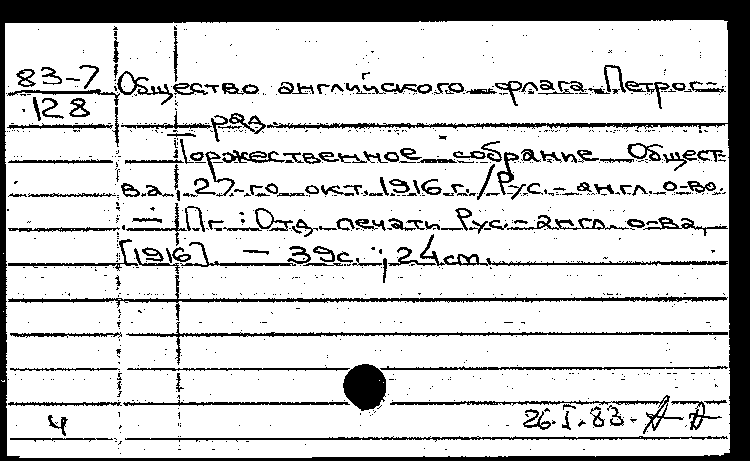 83-7 Общество английского флага. Петрог-
128
рад.
Торжественное собрание Общест-
ва, 27-го окт. 1916 г. / Рус.-англ. о-во.
— Пг.: Отд. печати Рус.-англ. о-ва,
[1916]. — 39с.; 24 cm.
4
26.I.83.